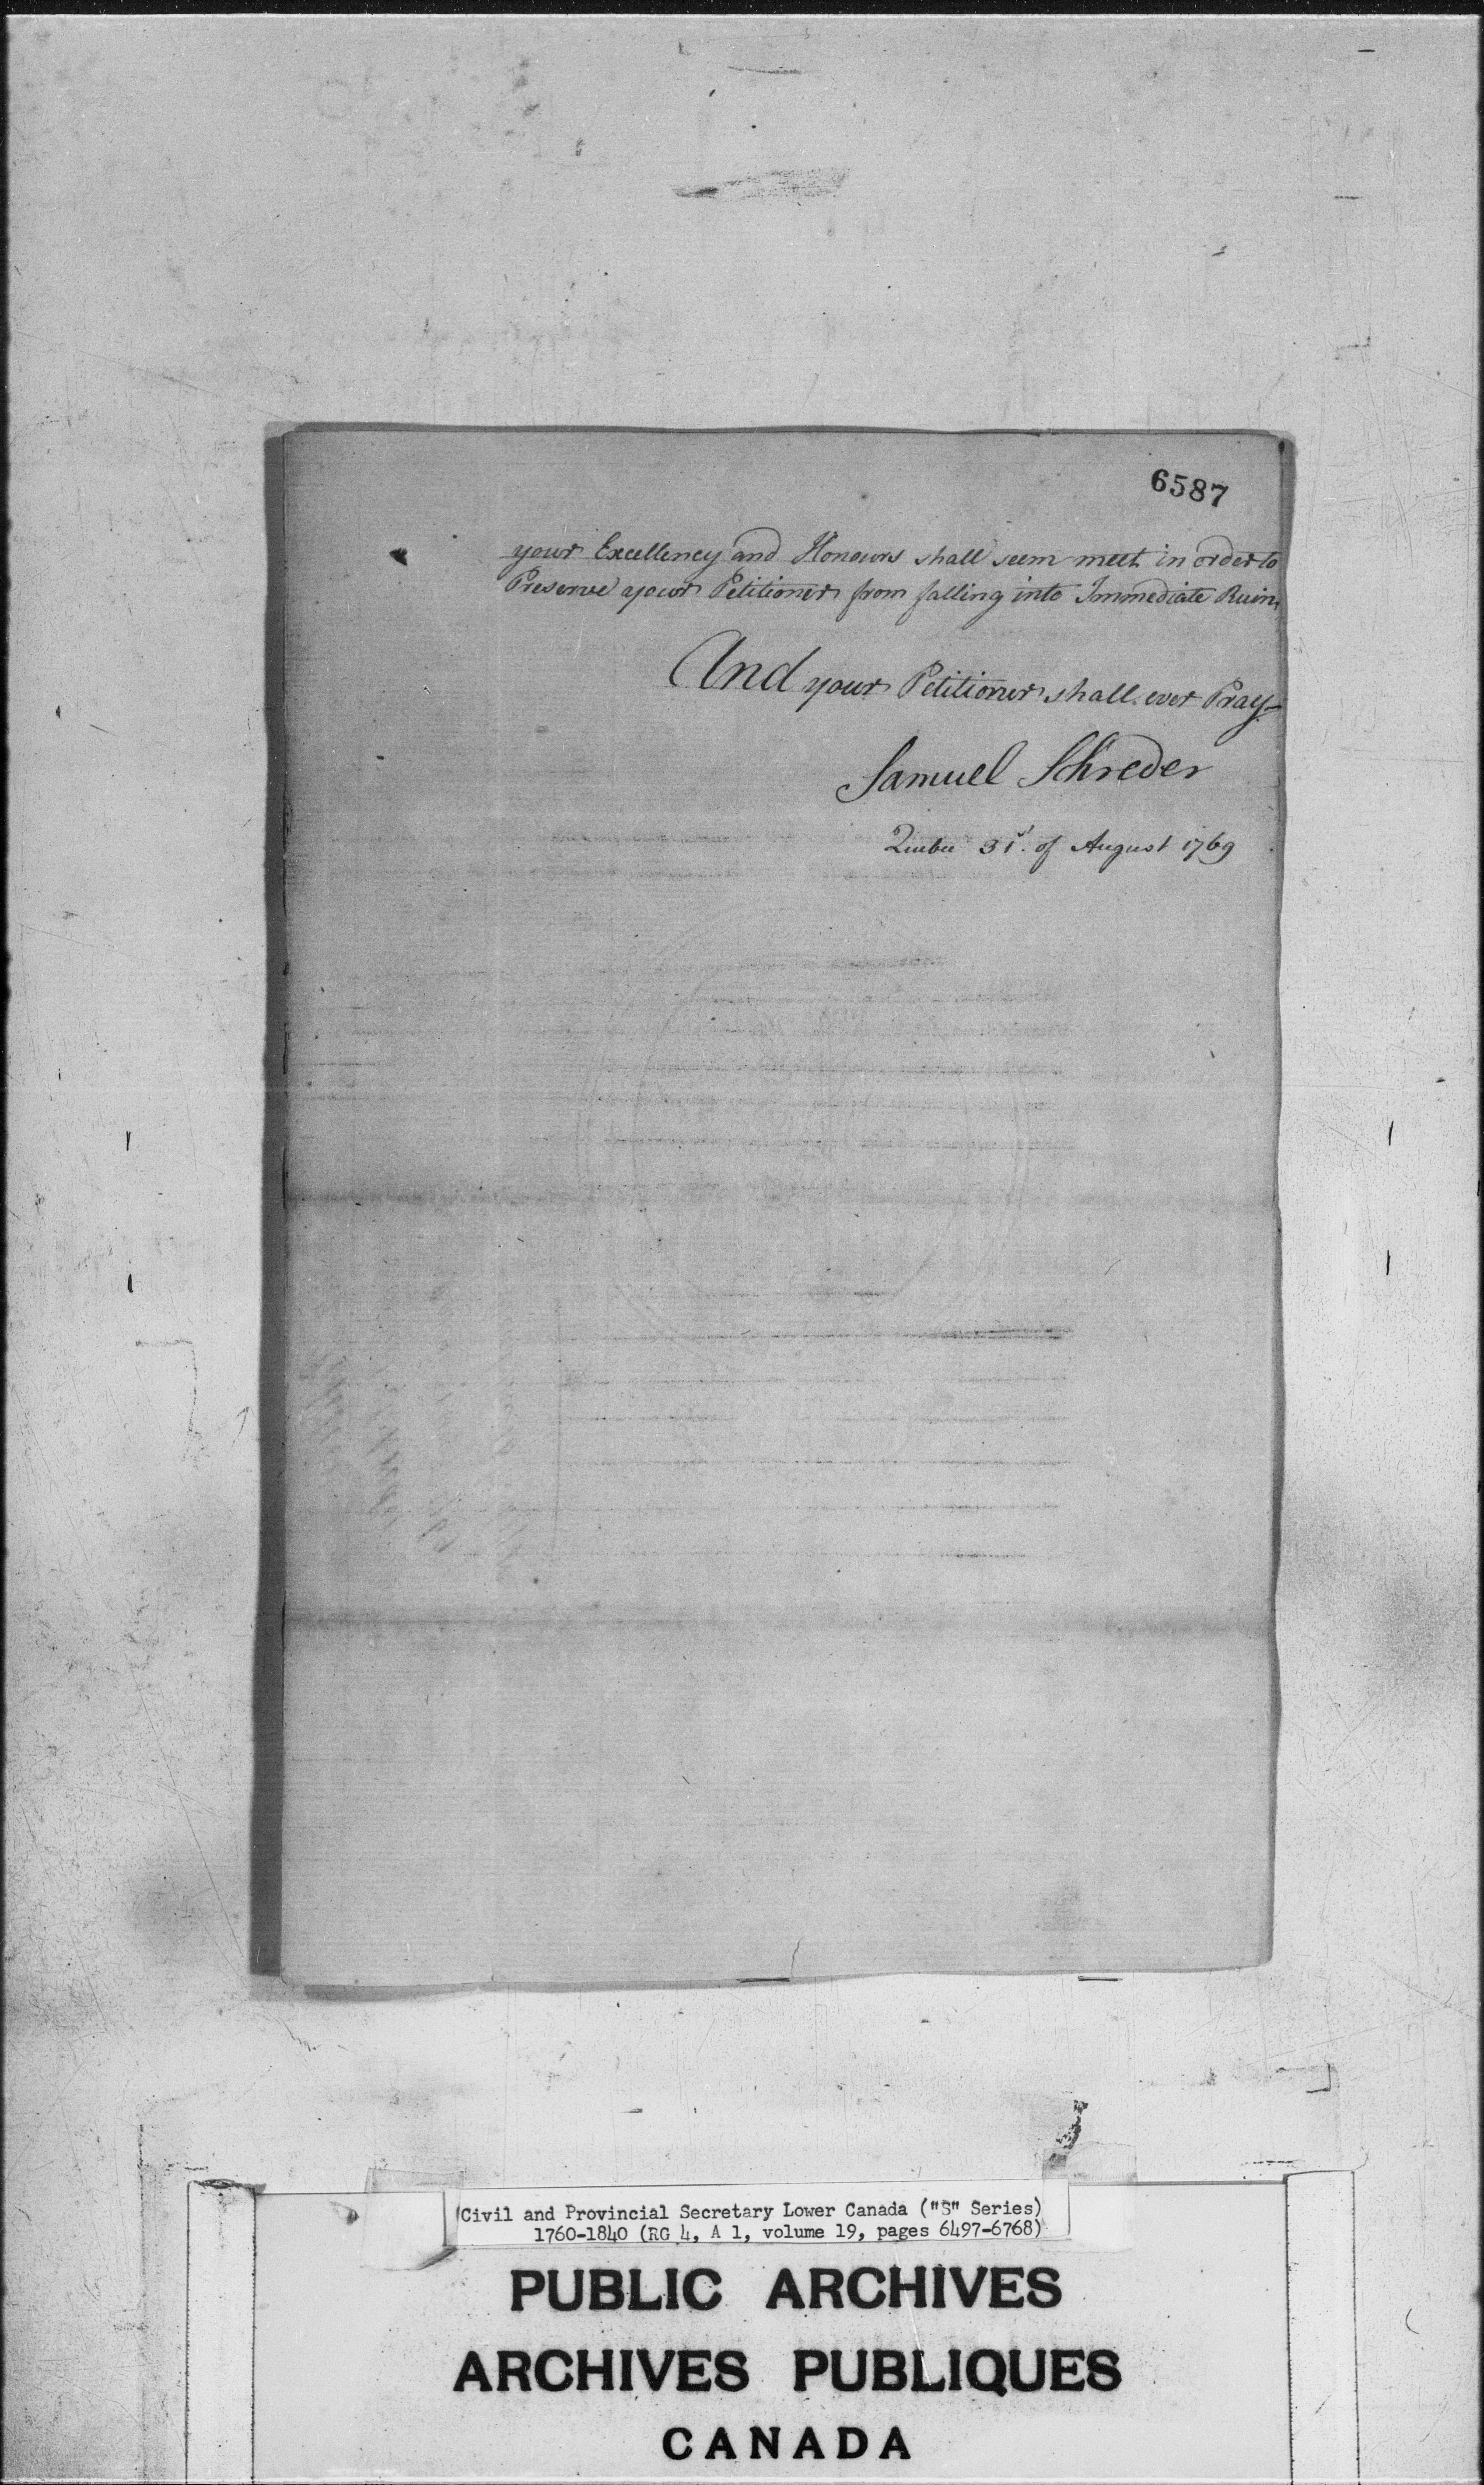 6587
your Excellency and Honours shall seem meet in order to
Preserve your Petitioner from falling into Immediate Ruin,
And your Petitioner shall ever Pray-
Samuel Schreder
Quebec 31st. of August 1769
Civil and Provincial Secretary Lower Canada ("S" Series)
1760-1840 (RG 4, A 1, volume 19, pages 6497-6768)
PUBLIC ARCHIVES
ARCHIVES PUBLIQUES
CANADA